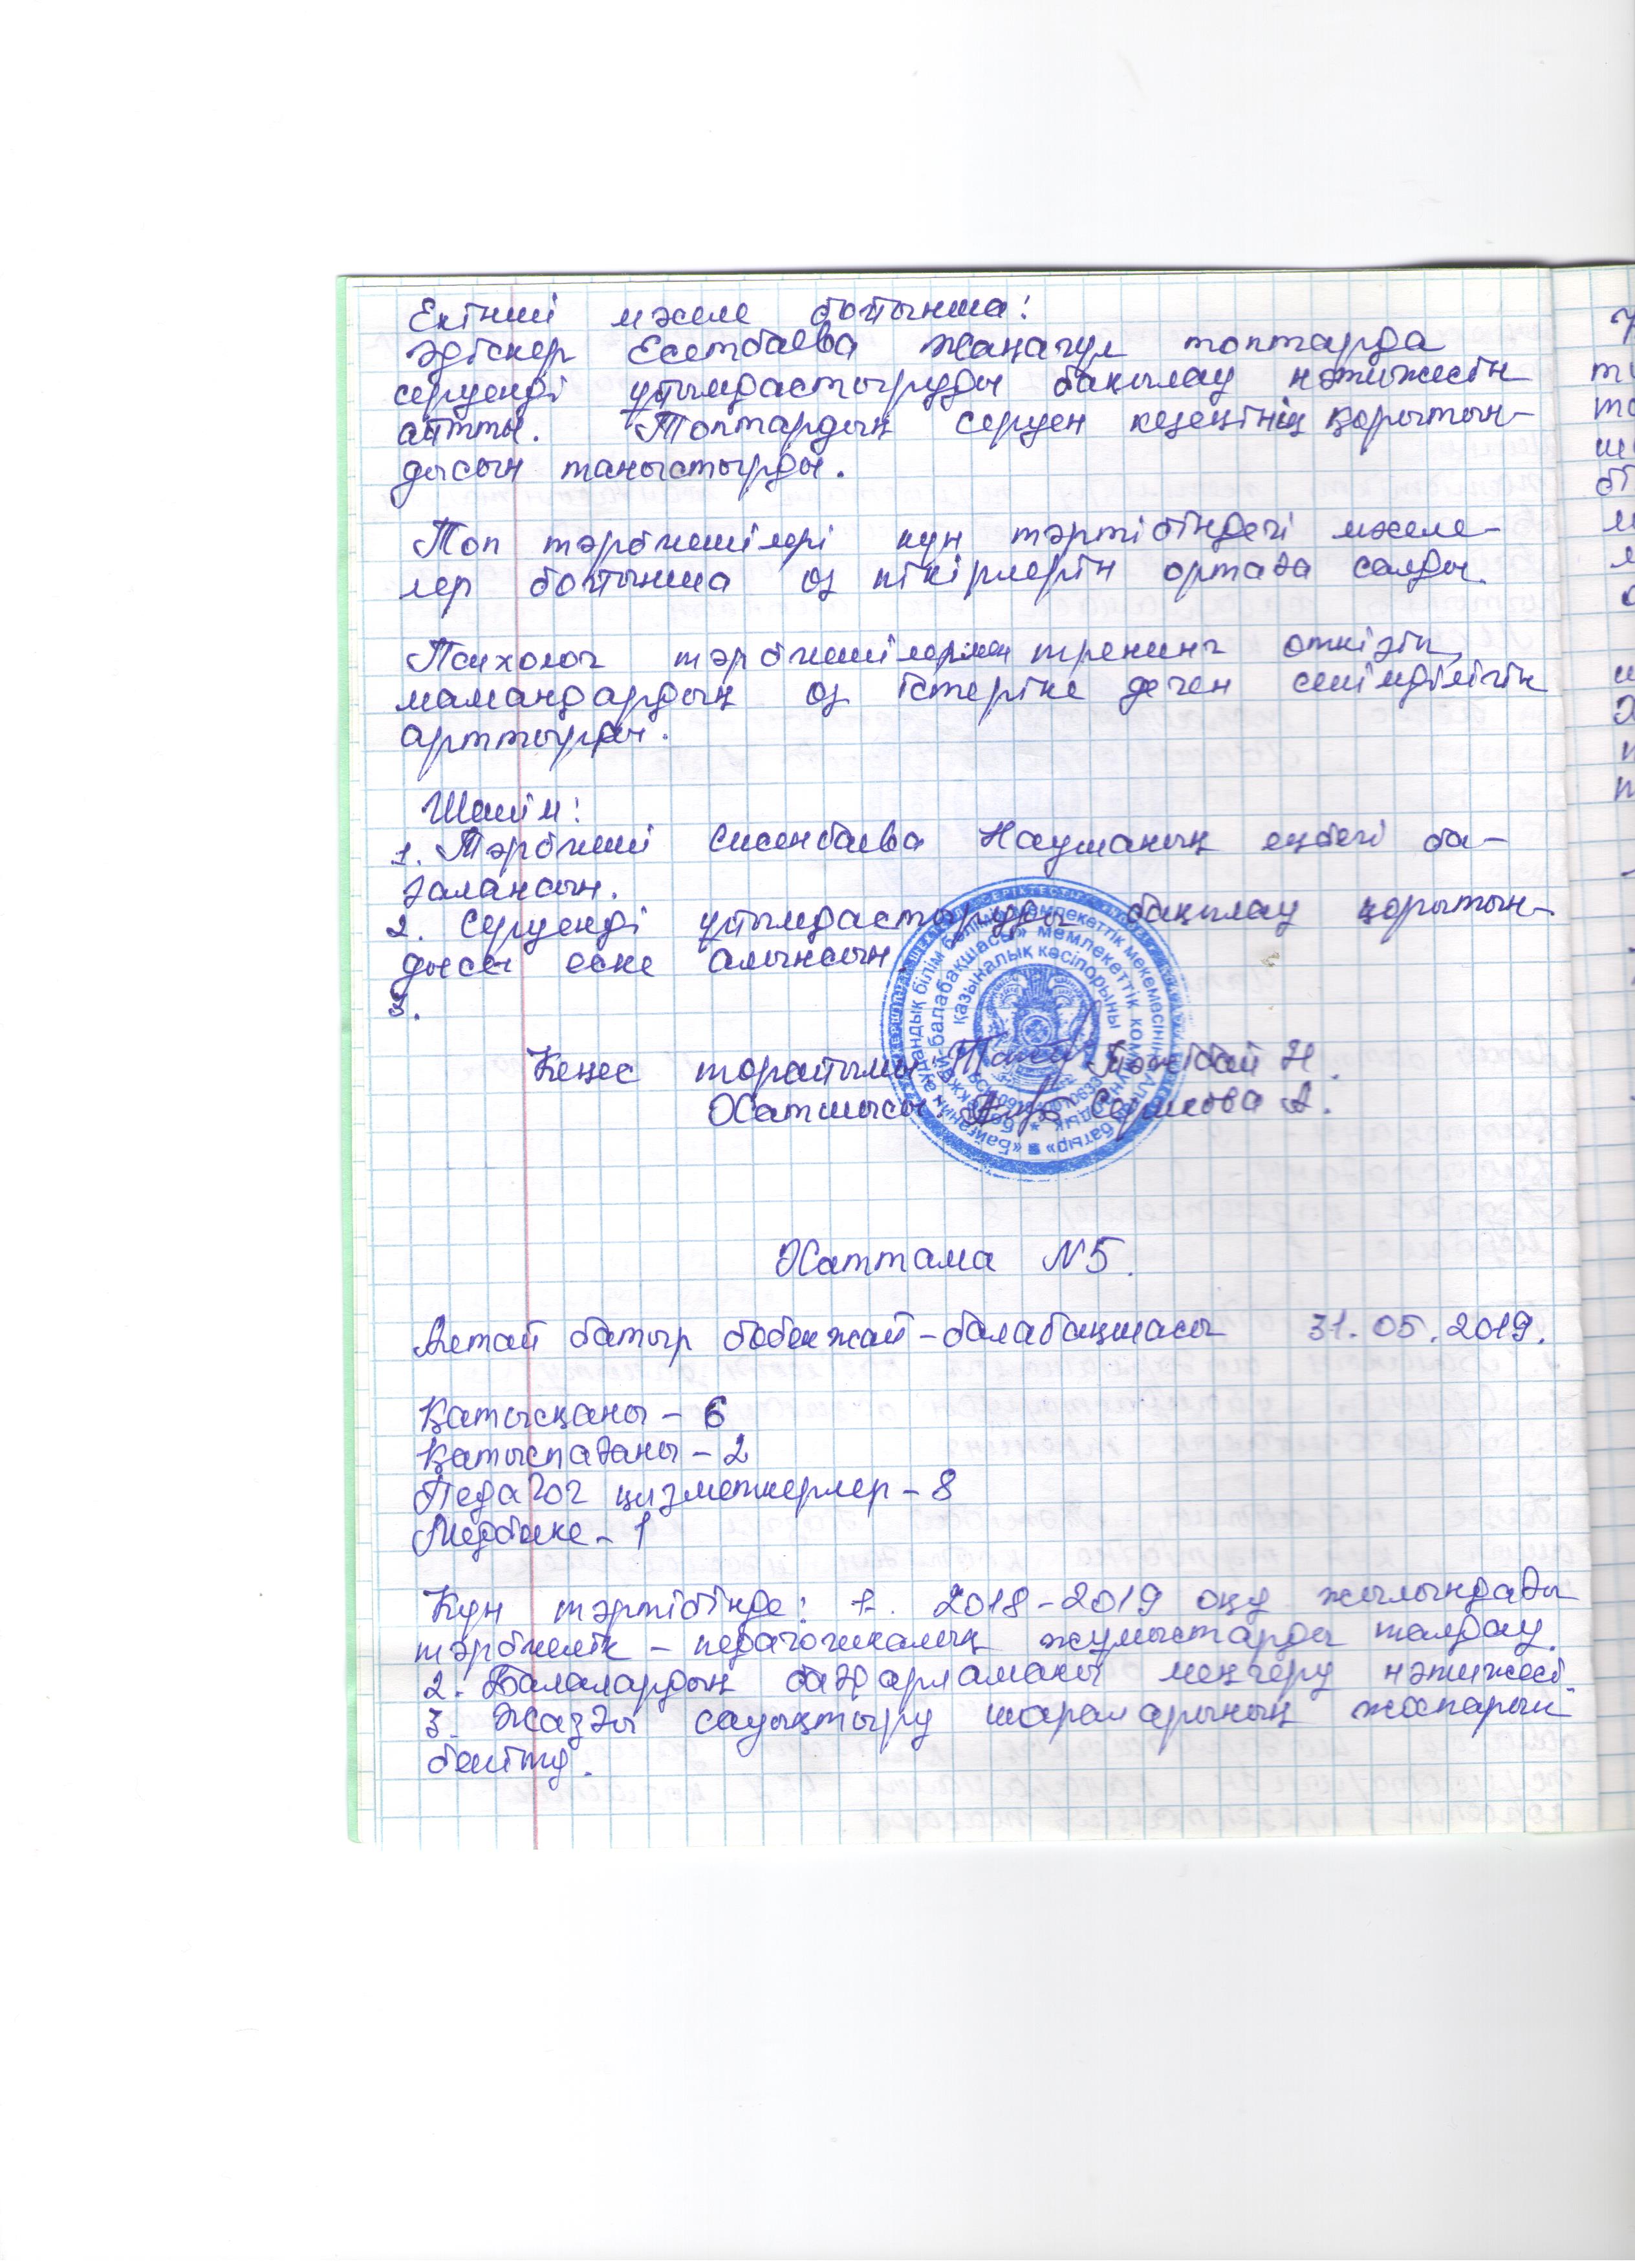 Екінші мәселе бойынша:
Әдіскер Есетбаева Жаңагүл топтарда
серуенді ұйымдастыруды бақылау нәтижесін
айтты. Топтардың серуен кезеңінің қорытын-
дысын таныстырды.
Топ тәрбиешілері күн тәртібіндегі мәселе-
лер бойынша өз пікірлерін ортаға салды.
Психолог тәрбиешілермен тренинг өткізіп,
мамандардың өз істеріне деген сенімділігін
арттырды.
Шешім:
1. Тәрбиеші Сисенбаева Наушаның еңбегі ба-
ғалансын.
2. Серуенді ұйымдастыруды бақылау қорытын-
дысы еске алынсын.
3.
Кеңес төрайымы Тәжібай Н.
Хатшысы Серикова А.
Хаттама N5.
Алтай батыр бөбекжай-балабақшасы 31.05.2019.
Қатысқаны - 6
Қатыспағаны - 2
Педагог қызметкерлер - 8
Медбике - 1
Күн тәртібінде: 1. 2018-2019 оқу жылындағы
тәрбиелік - педагогикалық жұмыстарды талдау.
2. Балалардың бағдарламаны меңгеру нәтижесі.
3. Жазғы сауықтыру шараларының жоспарын
бекіту.